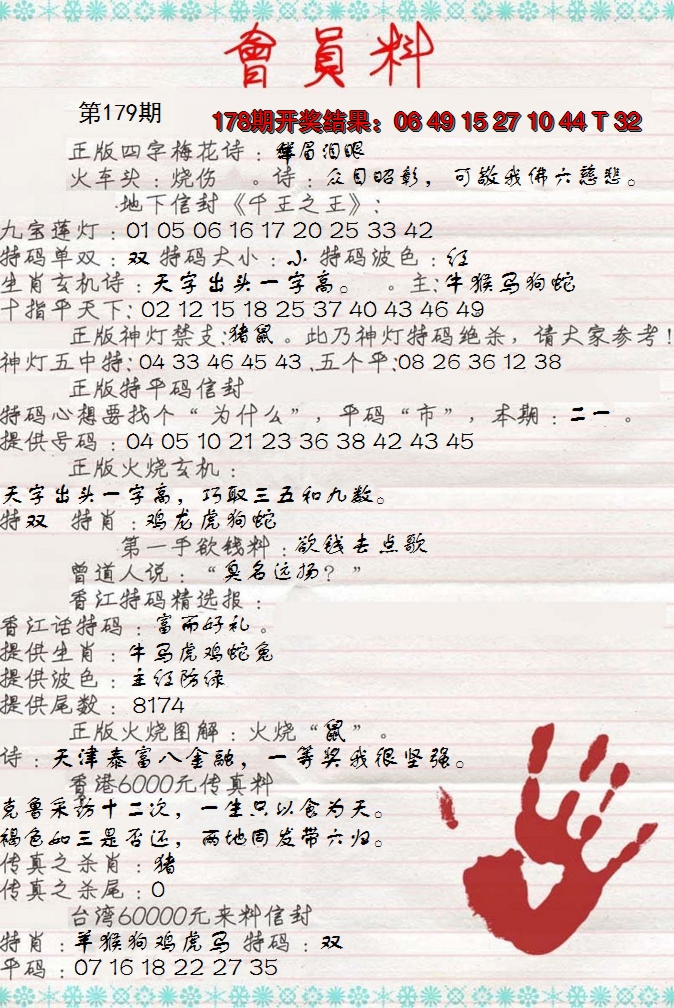 會員料
第179期
178期开奖结果：06 49 15 27 10 44 T 32
正版四字梅花诗：眉泪眼
火车头：烧伤 。诗：众目昭彰，可敬我佛六慈悲。
地下信封《千王之王》：
九宝莲灯：01 05 06 16 17 20 25 33 42
特码单双：双 特码大小：小 特码波色：红
生肖玄机诗：天字出头一字高。 。主：牛猴马狗蛇
十指平天下：02 12 15 18 25 37 40 43 46 49
正版神灯禁支：猪鼠。此乃神灯特码绝杀，请大家参考！
神灯五中特：04 33 46 45 43 .五个平：08 26 36 12 38
正版特平码信封
特码心想要找个“为什么”，平码“市”，本期：二一 。
提供号码：04 05 10 21 23 36 38 42 43 45
正版火烧玄机：
天字出头一字高，巧取三五和九数。
特双 特肖：鸡龙虎狗蛇
第一手欲钱料：欲钱去点歌
曾道人说：“臭名远扬？”
香江特码精选报：
香江话特码：富而好礼。
提供生肖：牛马虎鸡蛇兔
提供波色：主红防绿
提供尾数：8174
正版火烧图解：火烧“鼠”。
诗：天津泰富八金融，一等奖我很坚强。
香港6000元传真料
克鲁采访十二次，一生只以食为天。
褐色如三是否还，两地同发带六归。
传真之杀肖：猪
传真之杀尾：0
台湾60000元来料信封
特肖：羊猴狗鸡虎马 特码：双
平码：07 16 18 22 27 35